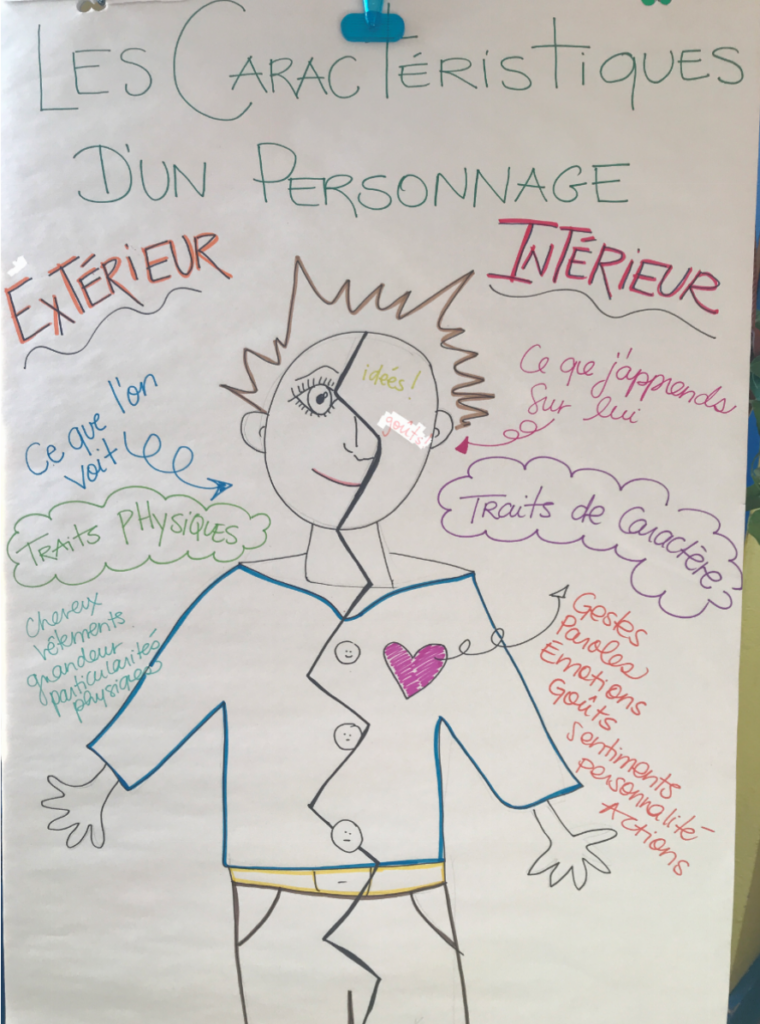 LES CARACTÉRISTIQUES
D'UN PERSONNAGE
EXTÉRIEUR
Ce que l'on
voit
TRAITS PHYSIQUES
cheveux
vêtements
grandeur
particularités
physiques
INTÉRIEUR
Ce que j'apprends
sur lui
Traits de caractère
Gestes
Paroles
Émotions
Goûts
sentiments
personnalité
Actions
idées!
goûts!